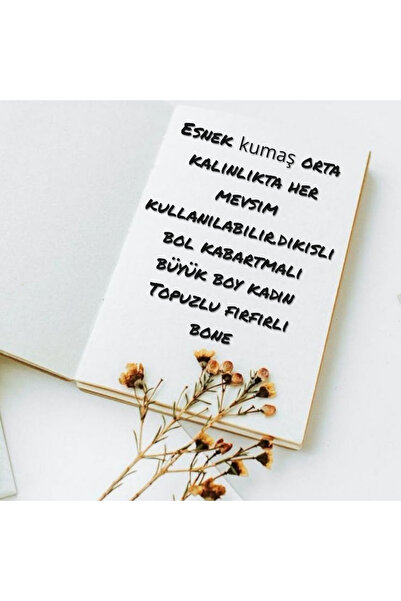 Esnek kumaş orta
kalınlıkta her
mevsim
kullanılabilir.dikişli
bol kabartmalı
büyük boy kadın
Topuzlu fırfırlı
bone